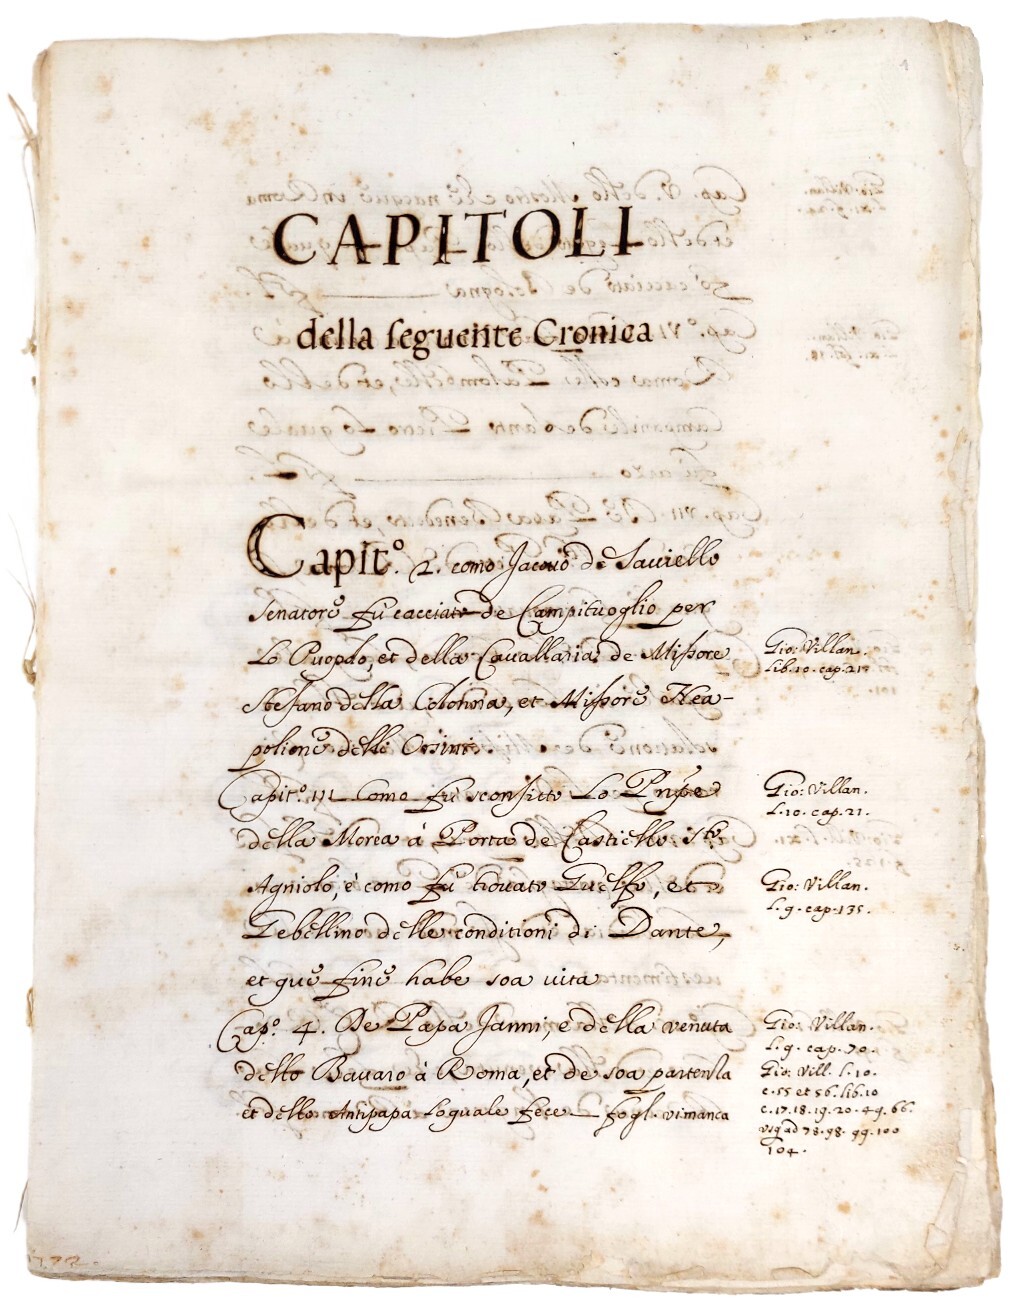 CAPITOLI
della seguente Cronica
Capit.º 2. como Jacovo de Saviello
senatore fu cacciato de Campituoglio per
Lo Puopolo, et della Cavallaria de Missore
Stefano della Colonna, et Missore Nea-
polione delli Orsini.
Gio: Villan.
Lib. 10. cap. 21.
Capit.º III Como fu sconfitto Lo Prñpe
della Morea à Porta de Castiello sto
Agniolo, è como fu trovato Guelfo, et
Gebellino delle conditioni di Dante,
et que fine habe soa vita
Gio: Villan.
L. 10. cap. 21.
Gio: Villan.
L. 9. cap. 135.
Capº. 4. De Papa Janni, e della venuta
dello Bavaro à Roma, et de soa partenza
et dello Antipapa loquale fece fogl. vi manca
Gio: Villan.
L. 9. cap. 70.
Gio: Vill. l. 10.
c. 55 et 56. lib. 10
c. 17. 18. 19. 20. 49. 66.
usq ad 73. 98. 99. 100
104.